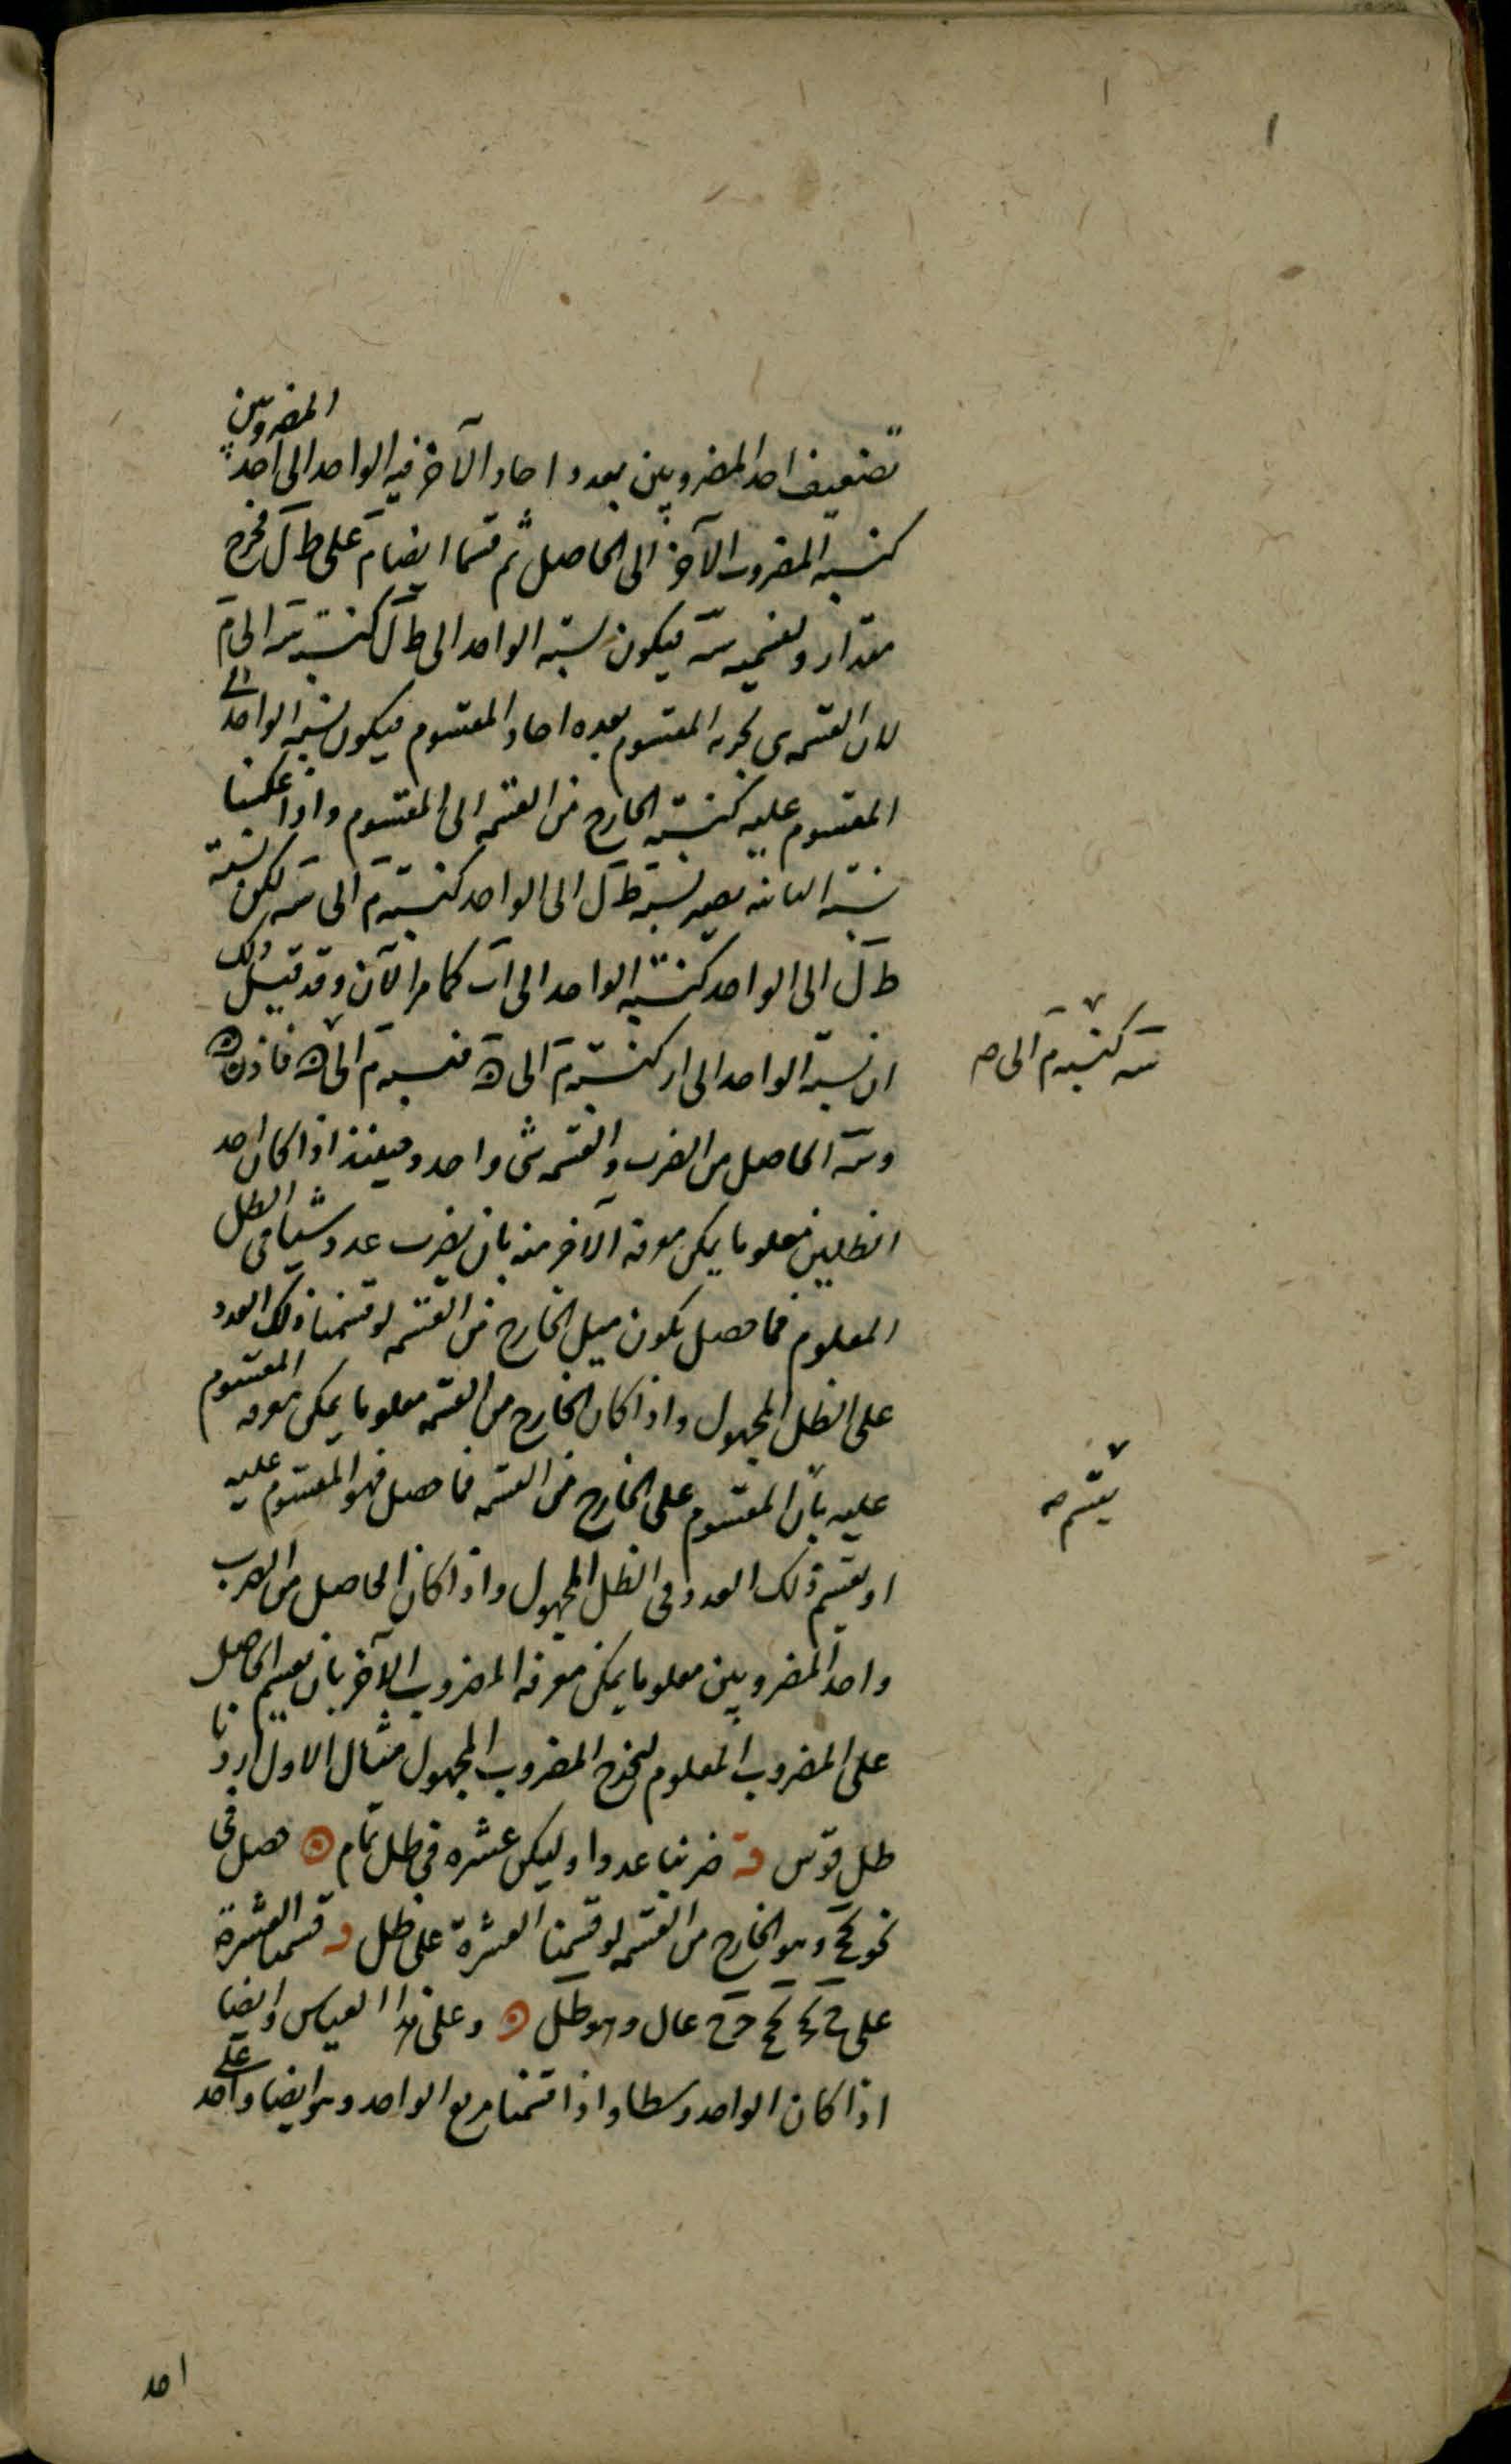 تضعيف احد المضروبين بعدد احاد الآخر فنسبة الواحد الى احد المضروبين
كنسبة المضروب الآخر الى الحاصل ثم قسمنا ايضا م على ط ل فخرج
مقدار ونسميه س فيكون نسبة الواحد الى ط ل كنسبة س الى م
لان القسمه هى تجزيه المقسوم بعده احاد المقسوم فيكون نسبة الواحد الى
المقسوم عليه كنسبة الخارج من القسمه الى المقسوم واذا عكسنا
نسبة الثانيه يصير نسبة ط ل الى الواحد كنسبة م الى س لكن نسبة
ط ل الى الواحد كنسبة الواحد الى ا ر كما مر الآن وقد قيل ذلك
ان نسبة الواحد الى ا ر كنسبة م الى ه فنسبة م الى ه فاذن ه
وس الحاصل من الضرب والقسمه شى واحد وحينئذ اذا كان احد
الظلين معلوما يمكن معرفة الآخر منه بان يضرب عدد شيئا فى الظل
المعلوم فما حصل يكون مثل الخارج من القسمه لو قسمنا ذلك العدد
على الظل المجهول واذا كان الخارج من القسمه معلوما يمكن معرفه المقسوم
عليه بان المقسوم على الخارج من القسمه فما حصل فهو المقسوم عليه
او يقسم ذلك العدد فى الظل المجهول واذا كان الحاصل من الضرب
واحد المضروبين معلوما يمكن معرفة المضروب الآخر بان يقسم الحاصل
على المضروب المعلوم ليخرج المضروب المجهول مثال الاول اردنا
ظل قوس ضربنا عددا وليكن عشره فى ظل تمام ه حصل
وهو الخارج من القسمه لو قسمنا العشرة على ظل قسمنا العشرة
على وهو ظل ه وعلى هذا القياس وايضا
اذا كان الواحد وسطا واذا قسمنا مربع الواحد وهو ايضا واحد على
س كنسبة م الى ه
يقسم
احد